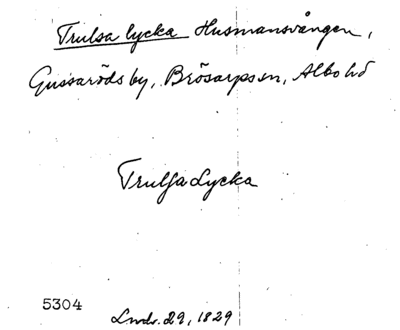 Trulsa lycka Husmansvången,
Gussaröds by, Brösarps sn, Albo hd
Trulsa Lycka
5304
Lmdr. 29, 1829